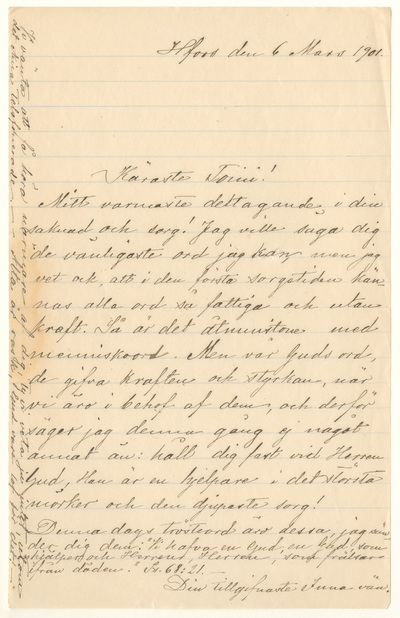 Hfors den 6 Mars 1901.
Käraste Toini!
Mitt varmaste deltagande i din
saknad och sorg! Jag ville säga dig
de vänligaste ord jag kan men jag
vet ock, att i den första sorgetiden kän-
nas alla ord så fattiga och utan
kraft. Så är det åtminstone med
menniskoord. Men vår Guds ord,
de gifva kraften och styrkan, när
vi äro i behof af dem, och derför
säger jag denna gång ej något
annat än: håll dig fast vid Herren
Gud, Han är en hjelpare i det största
mörker och den djupaste sorg!
Denna dags tröstord äro dessa, jag sän-
der dig dem: "Vi hafva en Gud, en Gud, som
hjelper och Herrens Herren, som frälsar
ifrån döden." Ps. 68:21.
Din tillgifnaste Inna vän.
Vi vänta att få höra närmare af dig